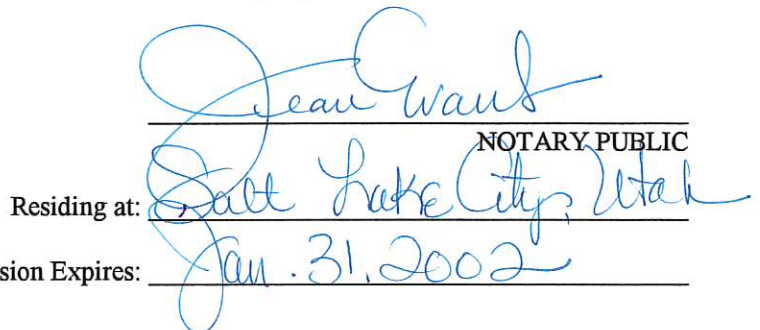 Jean Evans
NOTARY PUBLIC
Residing at: Salt Lake City, Utah
sion Expires: Jan. 31, 2002